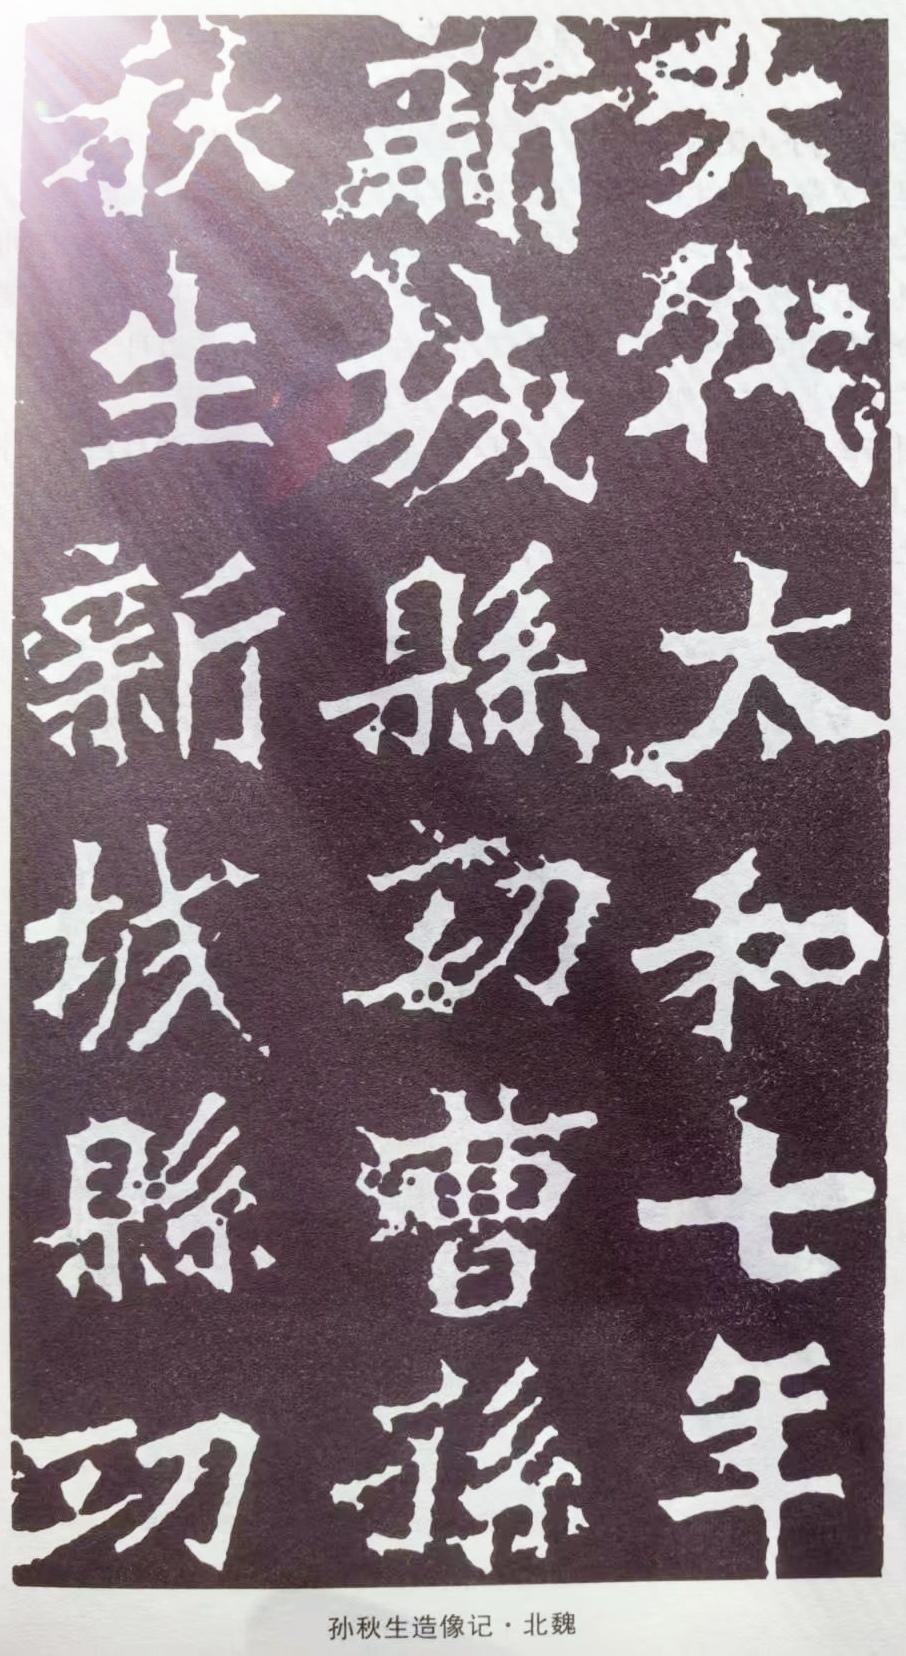 大代太和七年
新城縣功曹孫
秋生新城縣功
孙秋生造像记·北魏